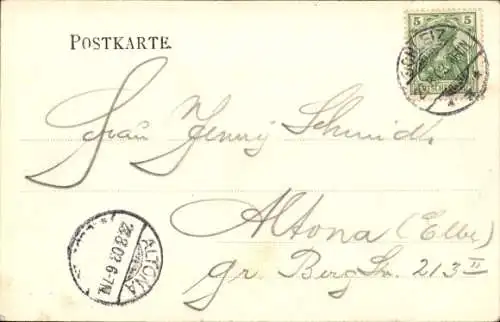 POSTKARTE.
5 5
Frau Jenny Schmidt
Altona (Elbe)
gr. Bergstr. 213 II
ALTONA
23.8.03. 6-7N.